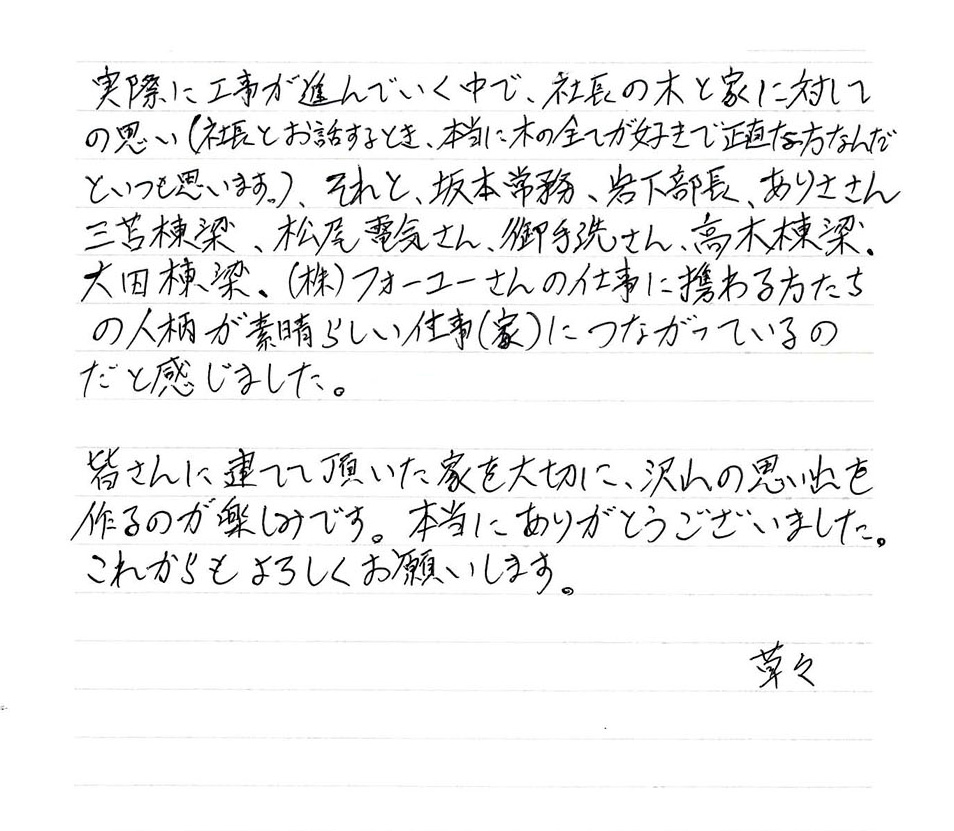 実際に工事が進んでいく中で、社長の木と家に対して
の思い(社長とお話するとき、本当に木の全てが好きで正直な方なんだ
といつも思います。)、それと、坂本常務、岩下部長、ありささん
三苫棟梁、松尾電気さん、御手洗さん、高木棟梁、
大田棟梁、(株)フォーユーさんの仕事に携わる方たち
の人柄が素晴らしい仕事(家)につながっているの
だと感じました。
皆さんに建てて頂いた家を大切に、沢山の思い出を
作るのが楽しみです。本当にありがとうございました。
これからもよろしくお願いします。
草々